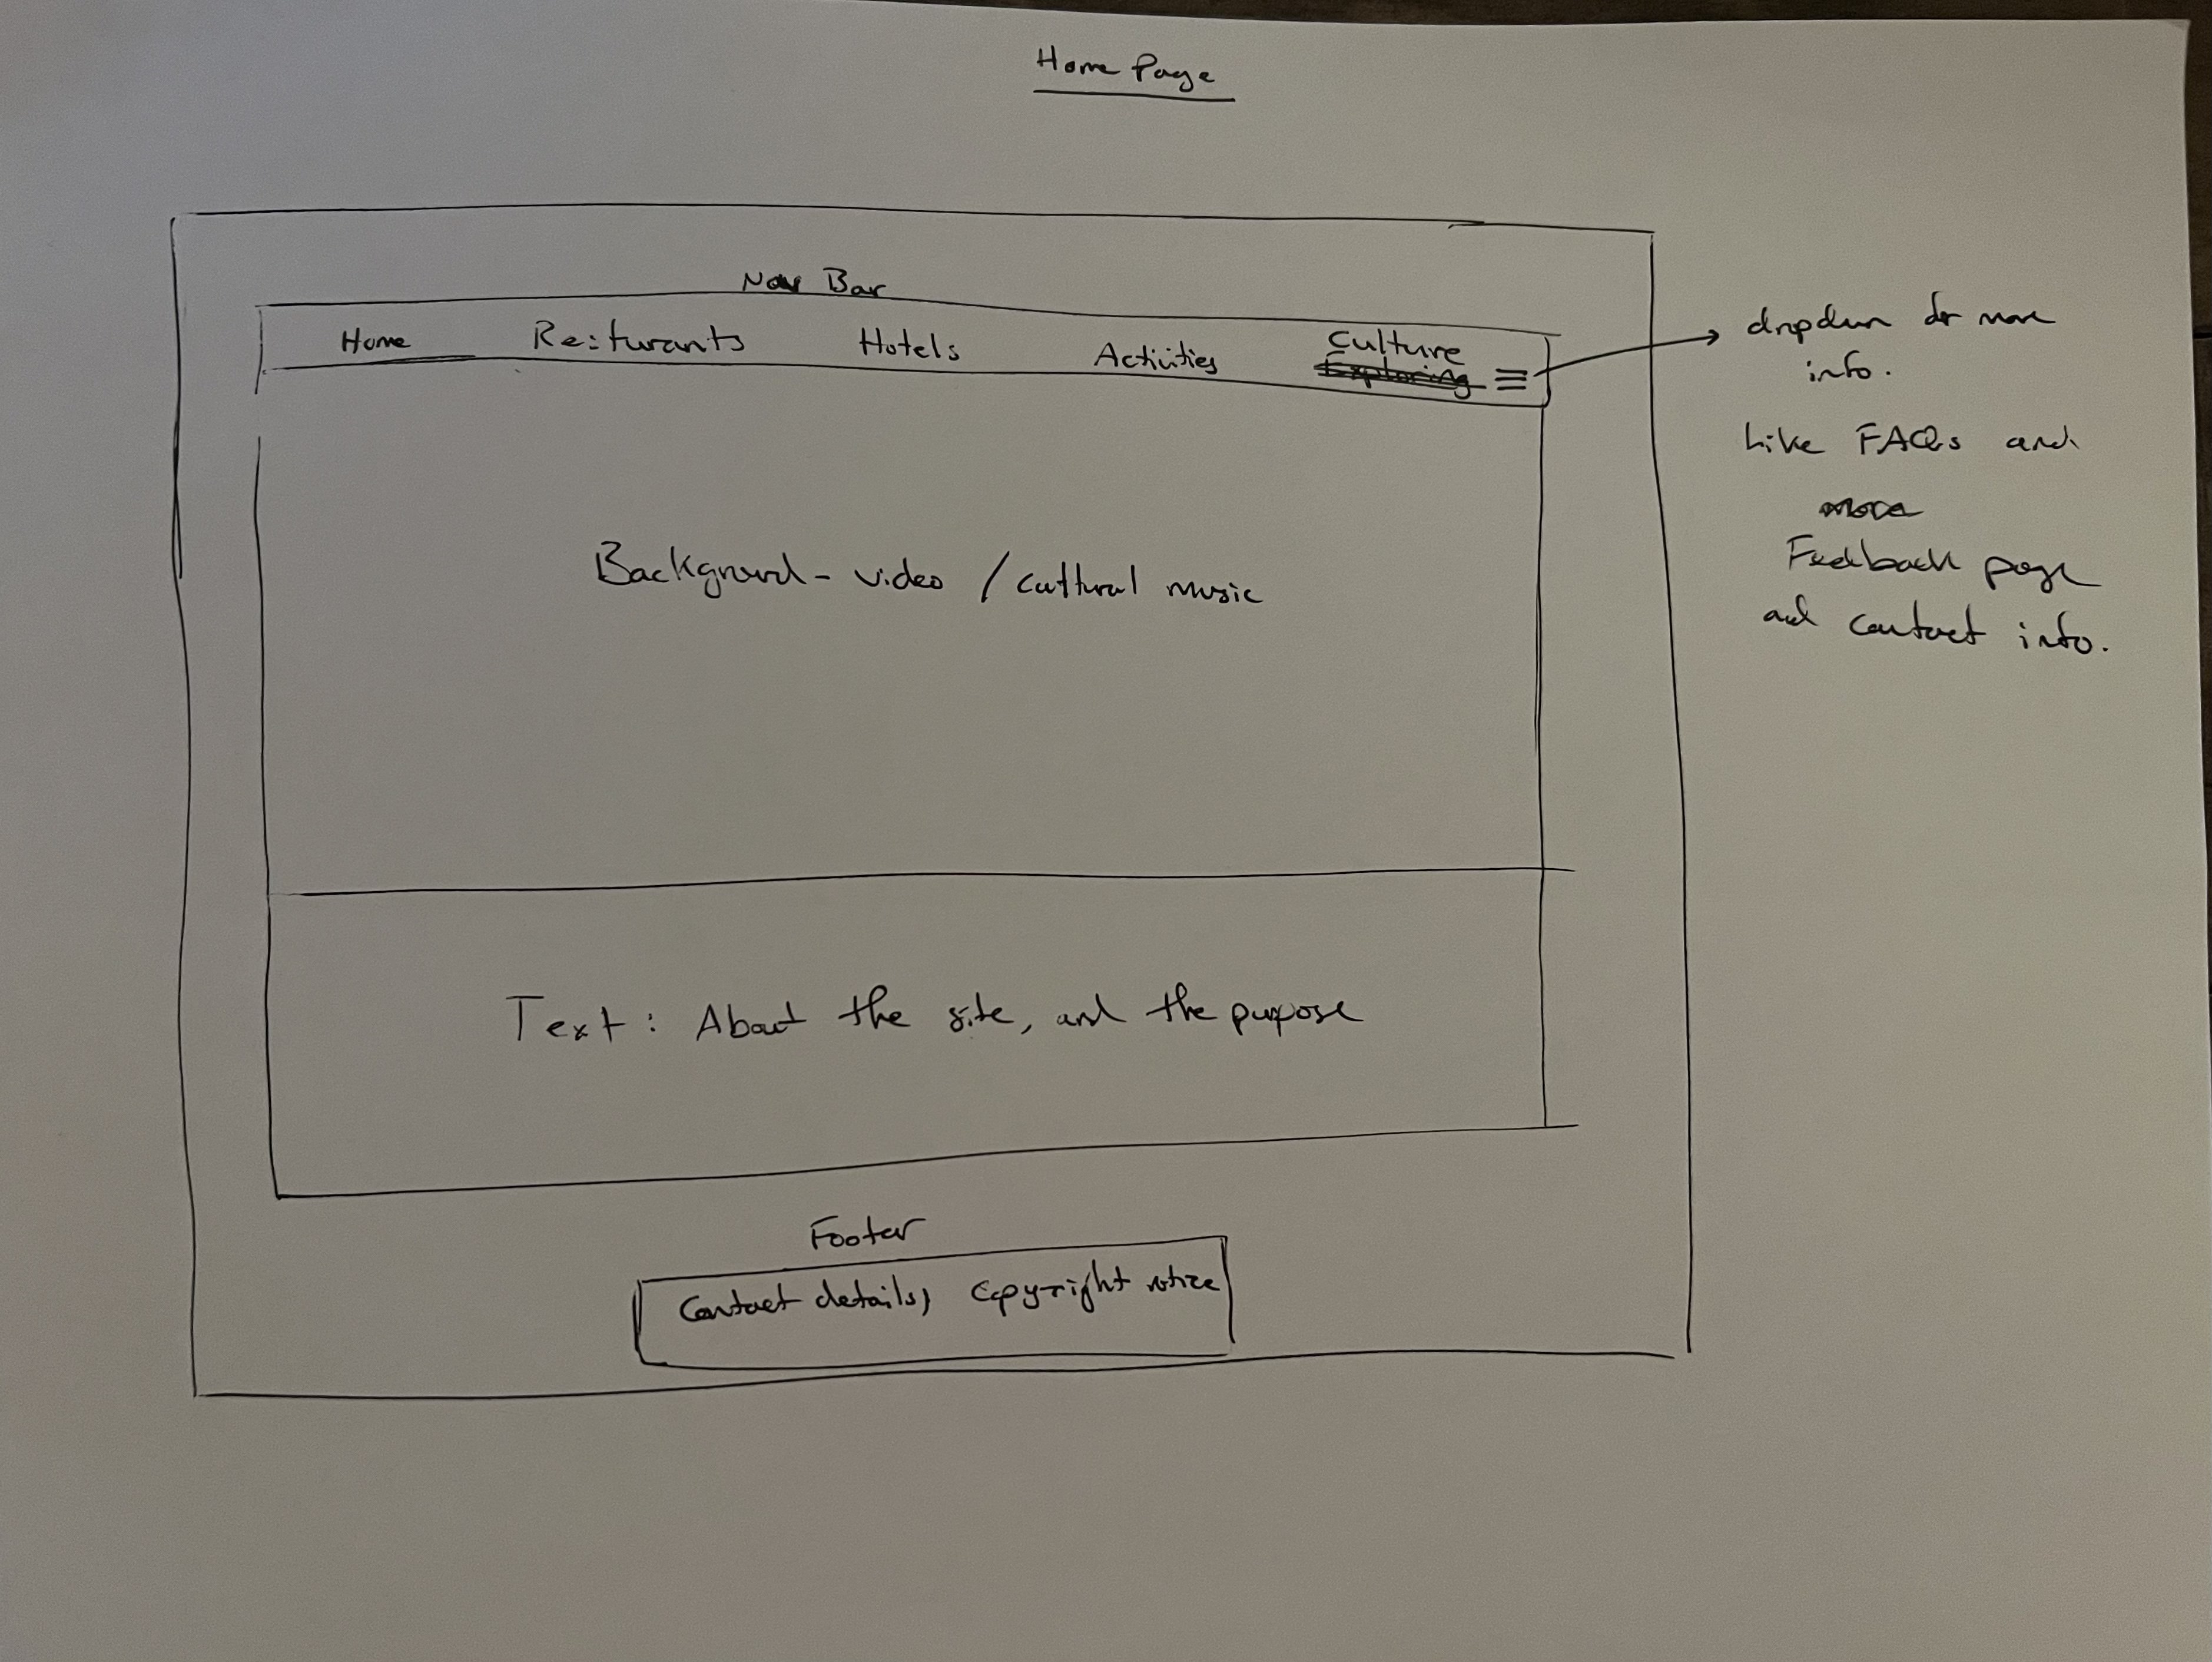 Home Page
Nav Bar
Home Resturants Hotels Activities Culture
Exploring
dropdown for more
info.
Like FAQs and
more
Feedback page
and contact info.
Background - video / cultural music
Text: About the site, and the purpose
Footer
Contact details, Copyright notice